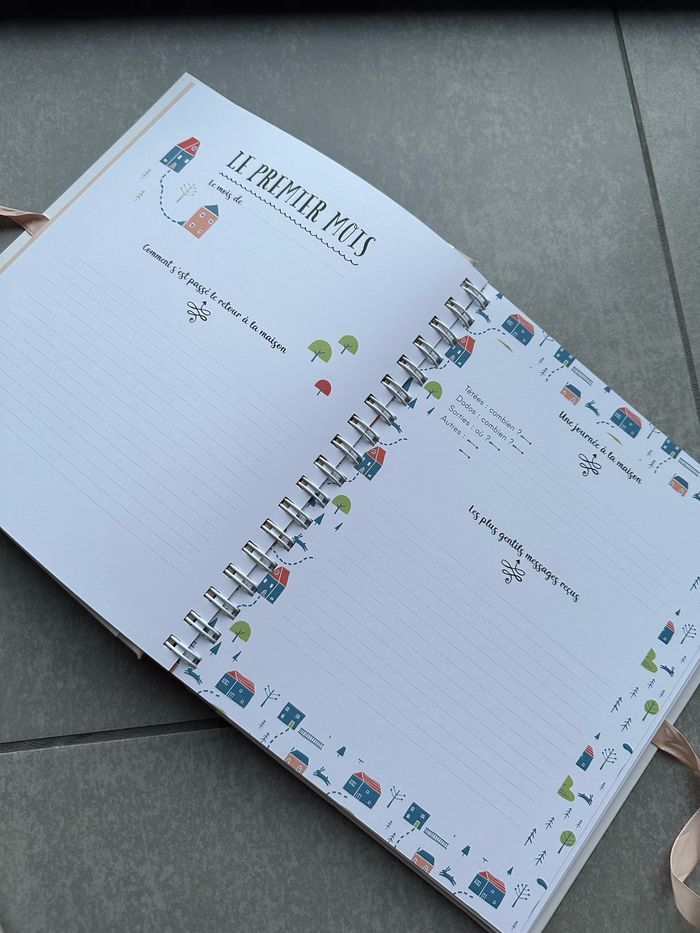 LE PREMIER MOIS
Le mois de
Comment s'est passé le retour à la maison
Une journée à la maison
Tétées : combien ?
Dodos : combien ?
Sorties : où ?
Autres :
Les plus gentils messages reçus